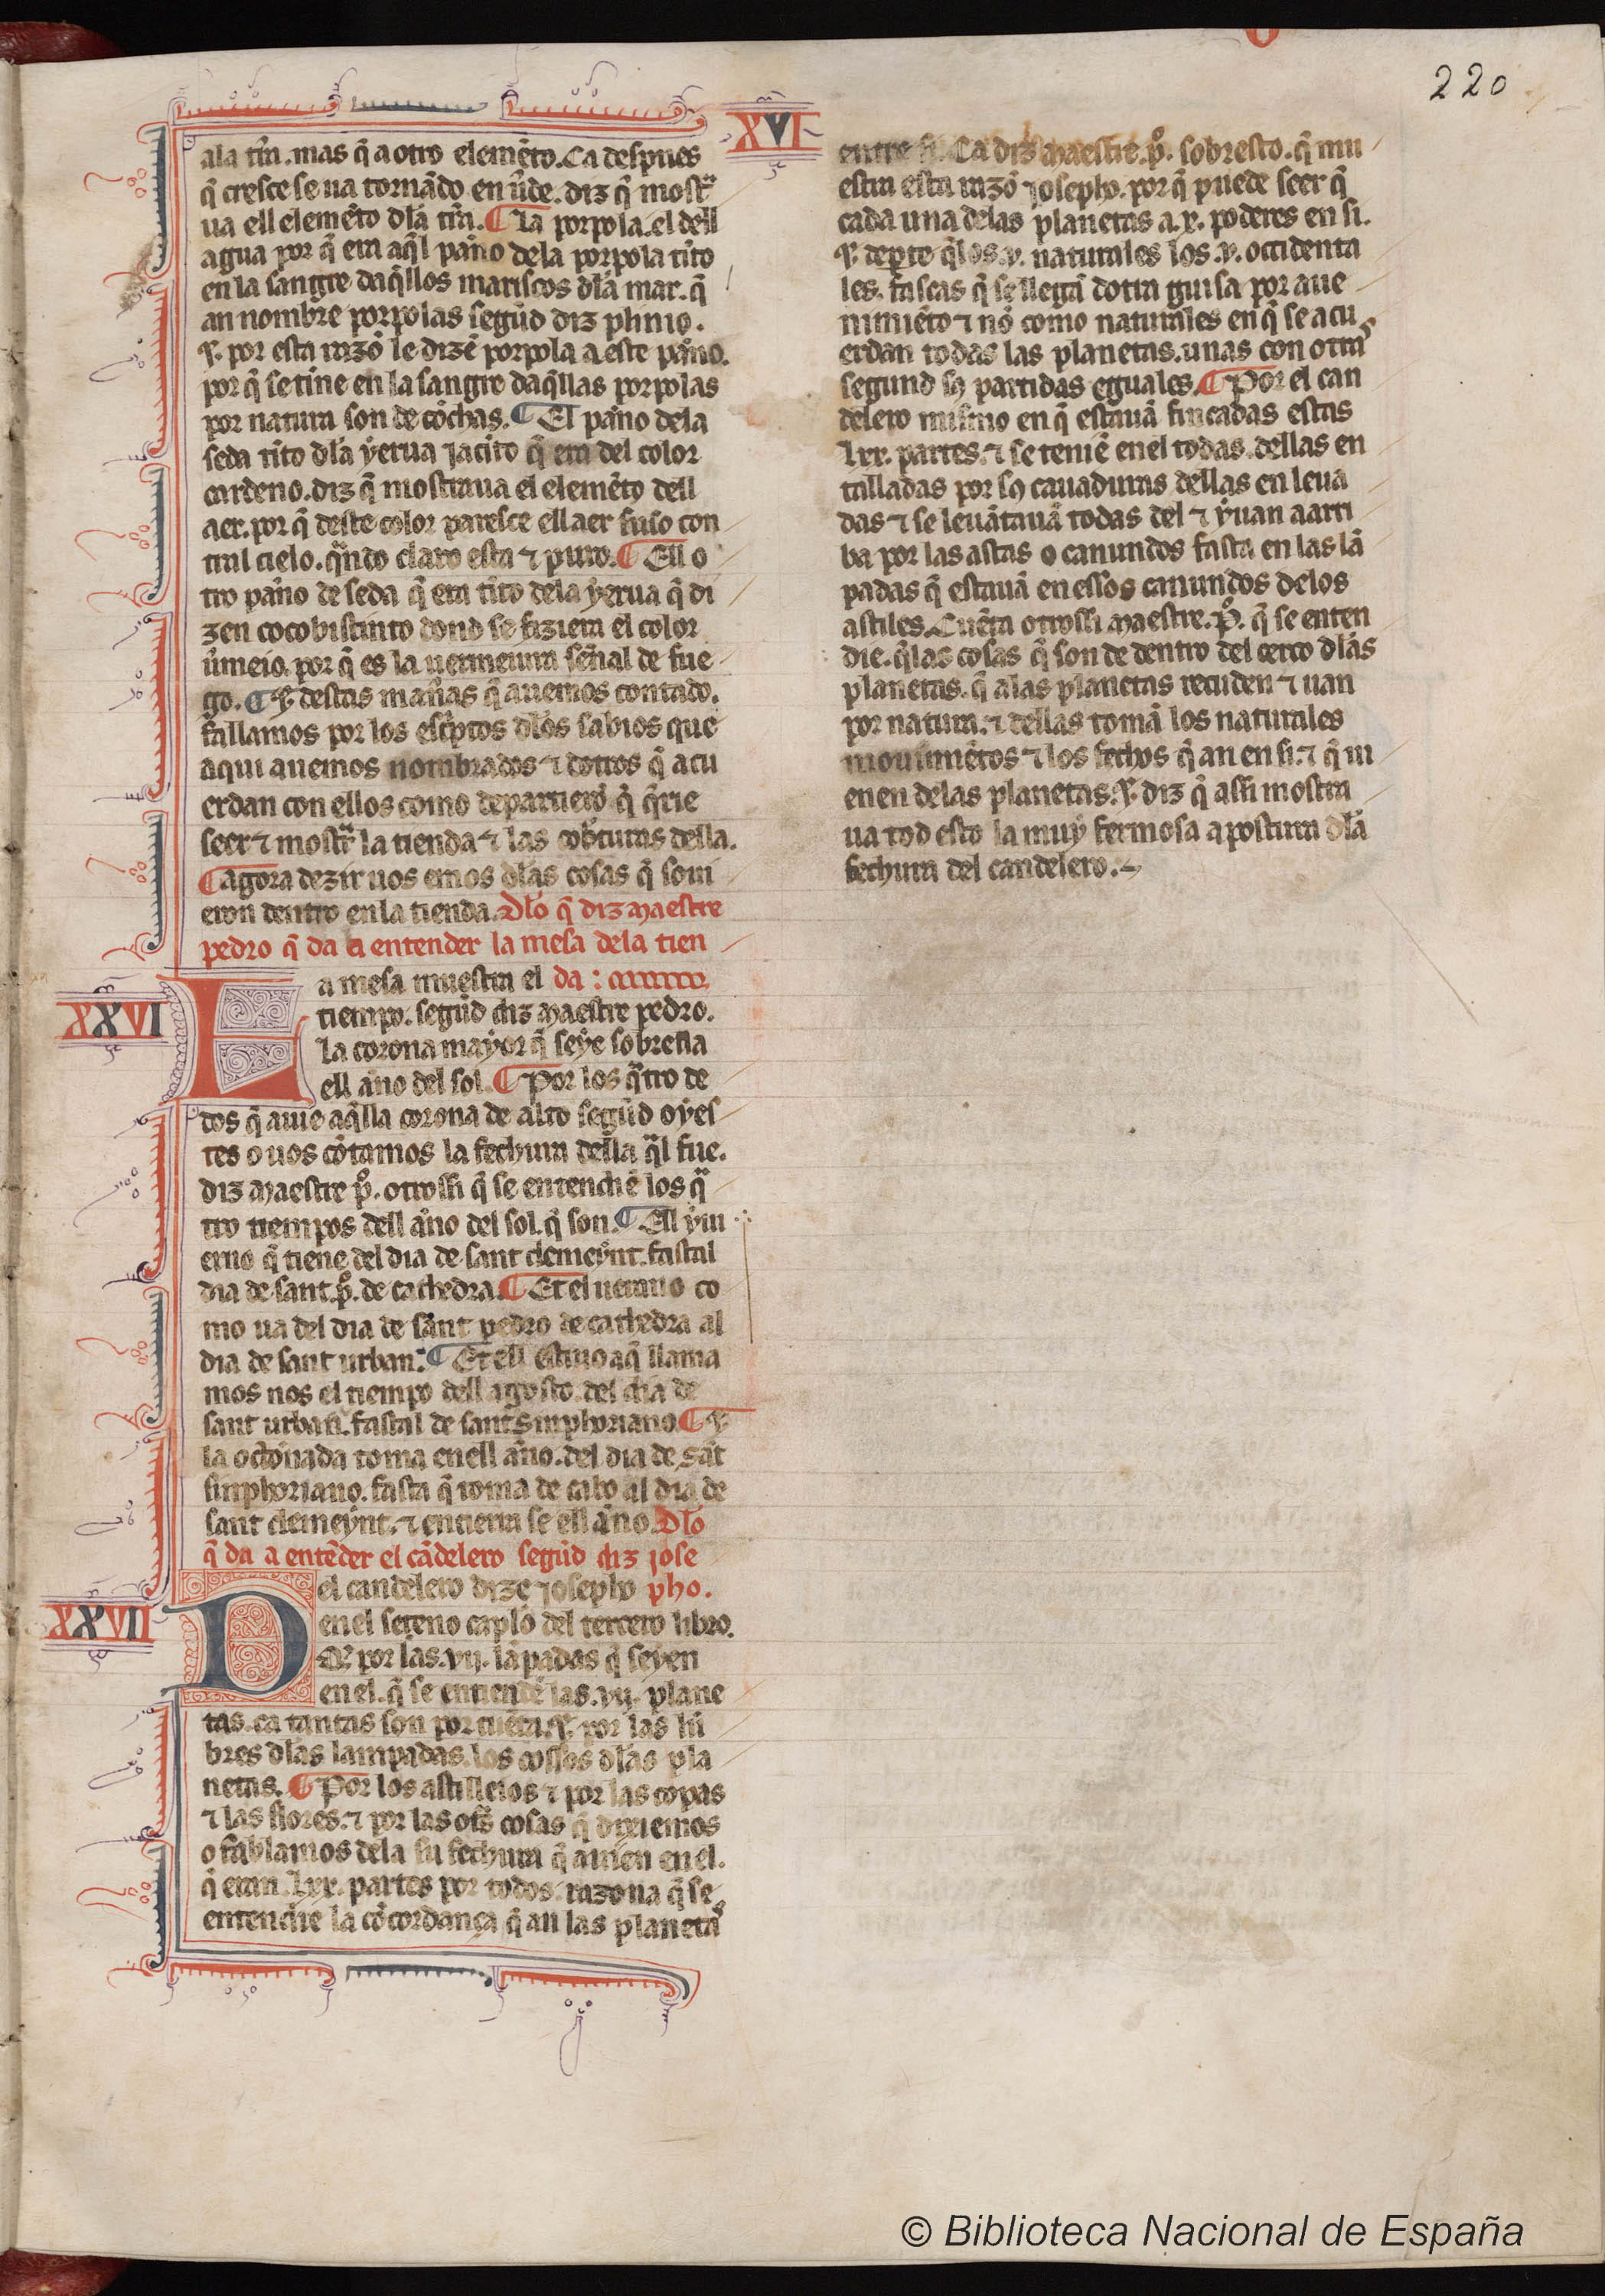 220
XVI
ala tr̃ra. mas q̃ a otro elemẽto. Ca despues
q̃ cresce se ua tornãdo en ũde. diz q̃ mostr̃a
ua ell elemẽto dla tr̃ra. ¶ La porpola. el dell
agua por q̃ era aq̃l pan̄o dela porpola tito
en la sangre daq̃llos mariscos dla mar. q̃
an nombre porpolas segũd diz plinio.
⁊. por esta razõ le dizẽ porpola a este pan̄o.
por q̃ se tine en la sangre daq̃llas porpolas
por natura son de cõchas. ¶ El pan̄o dela
seda tito dla yerua jacĩto q̃ era del color
cardeno. diz q̃ mostraua el elemẽto dell
aer. por q̃ deste color paresce ell aer suso con
tral cielo. q̃ndo claro esta ⁊ puro. ¶ Ell o
tro pan̄o de seda q̃ era tito dela yerua q̃ di
zen cocobistinto dond se fiziera el color
ũmeio. por q̃ es la uermeiura sen̄al de fue
go. ¶ ⁊. destas man̄as q̃ auemos contado.
fallamos por los esc̃ptos dlos sabios que
aqui auemos nombrados ⁊ dotros q̃ acu
erdan con ellos como departierõ q̃ q̃rie
seer ⁊ mostr̃ la tienda ⁊ las cob̃turas della.
¶ agora dezir uos emos dlas cosas q̃ soui
eron dentro en la tienda. Dlo q̃ diz maestre
pedro q̃ da a entender la mesa dela tien
XXVI
La mesa muestra el da:
tiempo. segũd diz maestre pedro.
La corona mayor q̃ seye sobrella
ell an̄o del sol. ¶ Por los q̃tro de
dos q̃ auie aq̃lla corona de alto segũd oyes
tes o uos cõtamos la fechura della q̃l fue.
diz maestre p̊. otrossi q̃ se entendiẽ los q̃
tro tiempos dell an̄o del sol. q̃ son. ¶ Ell yui
erno q̃ tiene del dia de sant clemeynt. fastal
dia de sant. p̊. de cathedra. ¶ Et el uerano co
mo ua del dia de sant pedro de cathedra al
dia de sant urban. ¶ Et ell estiuo aq̃ llama
mos nos el tiempo dell agosto. del dia de
sant urban. fastal de sant Simphoriano. ¶ ⁊.
la octonada toma en ell an̄o. del dia de sãt
simphoriano. fasta q̃ toma de cabo al dia de
sant clemeynt. ⁊ entierra se ell an̄o. Dlo
q̃ da a entẽder el cãdelero segũd diz jose
XXVII
Del candelero dize josepho pho.
en el seteno caplo del tercero libro.
Q̃ por las. vij. lãpadas q̃ seyen
en el. q̃ se entiendẽ las. vij. plane
tas. ca tantas son por cuẽta. ⁊. por las lũ
bres dlas lampadas. los cossos dlas pla
netas. ¶ Por los astilleios ⁊ por las copas
⁊ las flores. ⁊ por las ots̃ cosas q̃ dixiemos
o fablamos dela su fechura q̃ auien en el.
q̃ eran. Lxx. partes por todos. razona q̃ se
entendie la cõcordança q̃ an las planetas
entre si. Ca diz maestre. p̊. sobresto. q̃ mu
estra esta razõ josepho. por q̃ puede seer q̃
cada una delas planetas a. x. poderes en si.
⁊. deꝑte q̃ los. v. naturales los. v. occidenta
les. fascas q̃ se llegã dotra guisa por aue
nimiẽto ⁊ nõ como naturales en q̃ se acu
erdan todas las planetas. unas con otras
segund sꝯ partidas eguales. ¶ Por el can
delero mismo en q̃ estauã fincadas estas
Lxx. partes. ⁊ se teniẽ en el todas. dellas en
talladas por sꝯ cauaduras dellas en leua
das ⁊ se leuãtauã todas del ⁊ yuan a arri
ba por las astas o canundos fasta en las lã
padas q̃ estauã en essos canundos delos
astiles. Cuẽta otrossi maestre. P̊. q̃ se enten
die. q̃ las cosas q̃ son de dentro del cerco dlas
planetas. q̃ alas planetas recuden ⁊ uan
por natura. ⁊ dellas tomã los naturales
mouimiẽtos ⁊ los fechos q̃ an en si. ⁊ q̃ ui
enen delas planetas. ⁊. diz q̃ assi mostra
ua tod esto la muy fermosa apostura dla
fechura del candelero.
© Biblioteca Nacional de España